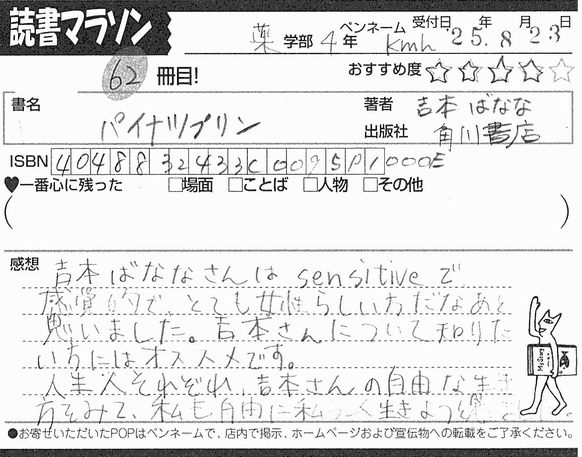 読書マラソン
薬 学部 4 年 ペンネーム kmh 受付日 '25 年 8 月 23 日
62 冊目!
おすすめ度 ☆☆☆☆☆
書名 パイナツプリン
著者 吉本 ばなな
出版社 角川書店
ISBN 4048832433C0095P1000E
♥一番心に残った □場面 □ことば □人物 □その他
感想
吉本ばななさんは sensitive で
感覚的で、とても女性らしい方だなあと
思いました。吉本さんについて知りた
い方にはオススメです。
人生人それぞれ、吉本さんの自由な生き
方をみて、私も自由に私らしく生きようと
Mystery
●お寄せいただいたPOPはペンネームで、店内で掲示、ホームページおよび宣伝物への転載をご了承ください。